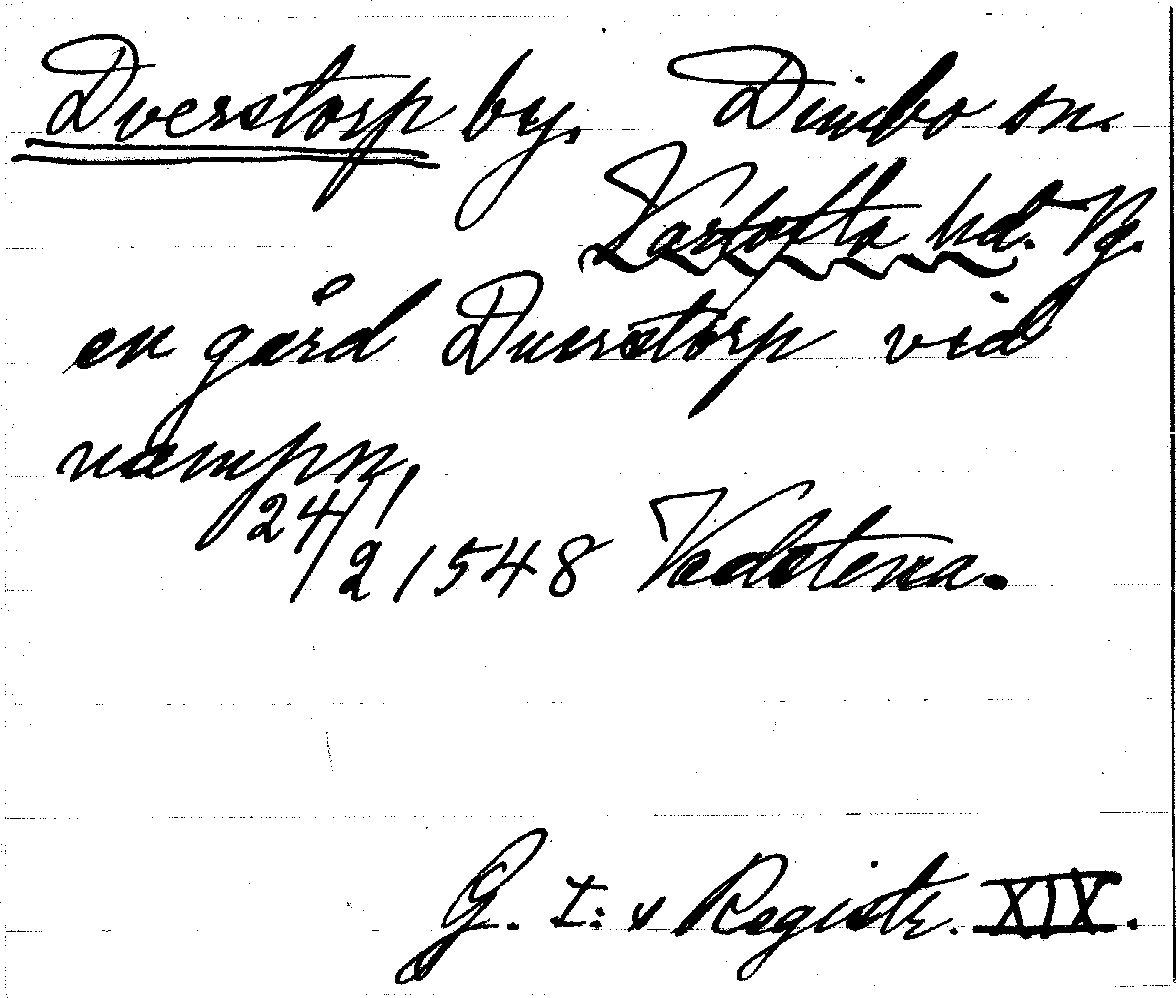 Dverstorp by. Dimbo sn.
Vartofta hd. Vg.
en gård Duerstorp vid
nampn,
24/2 1548 Vadstena.
G. I:s Registr. XIX.